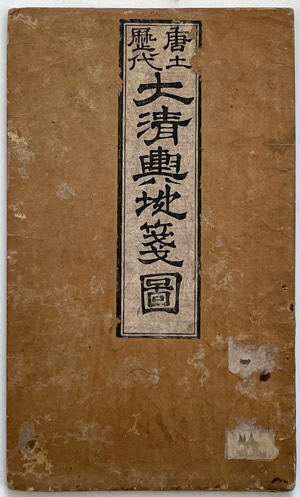 唐土
歴代
大清輿地箋圖